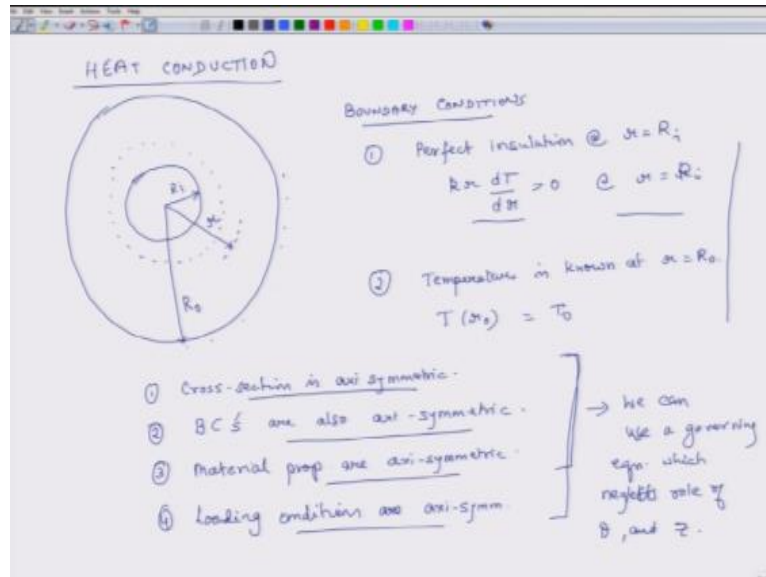 HEAT CONDUCTION
Ri
r
Ro
BOUNDARY CONDITIONS
① Perfect insulation @ r = Ri
kr dT/dr = 0 @ r = Ri
② Temperature is known at r = Ro
T (ro) = To
① Cross-section is axi symmetric.
② BC's are also axi-symmetric.
③ Material prop are axi-symmetric.
④ Loading conditions are axi-symm.
→ We can
use a governing
eqn. which
neglects role of
θ, and z.